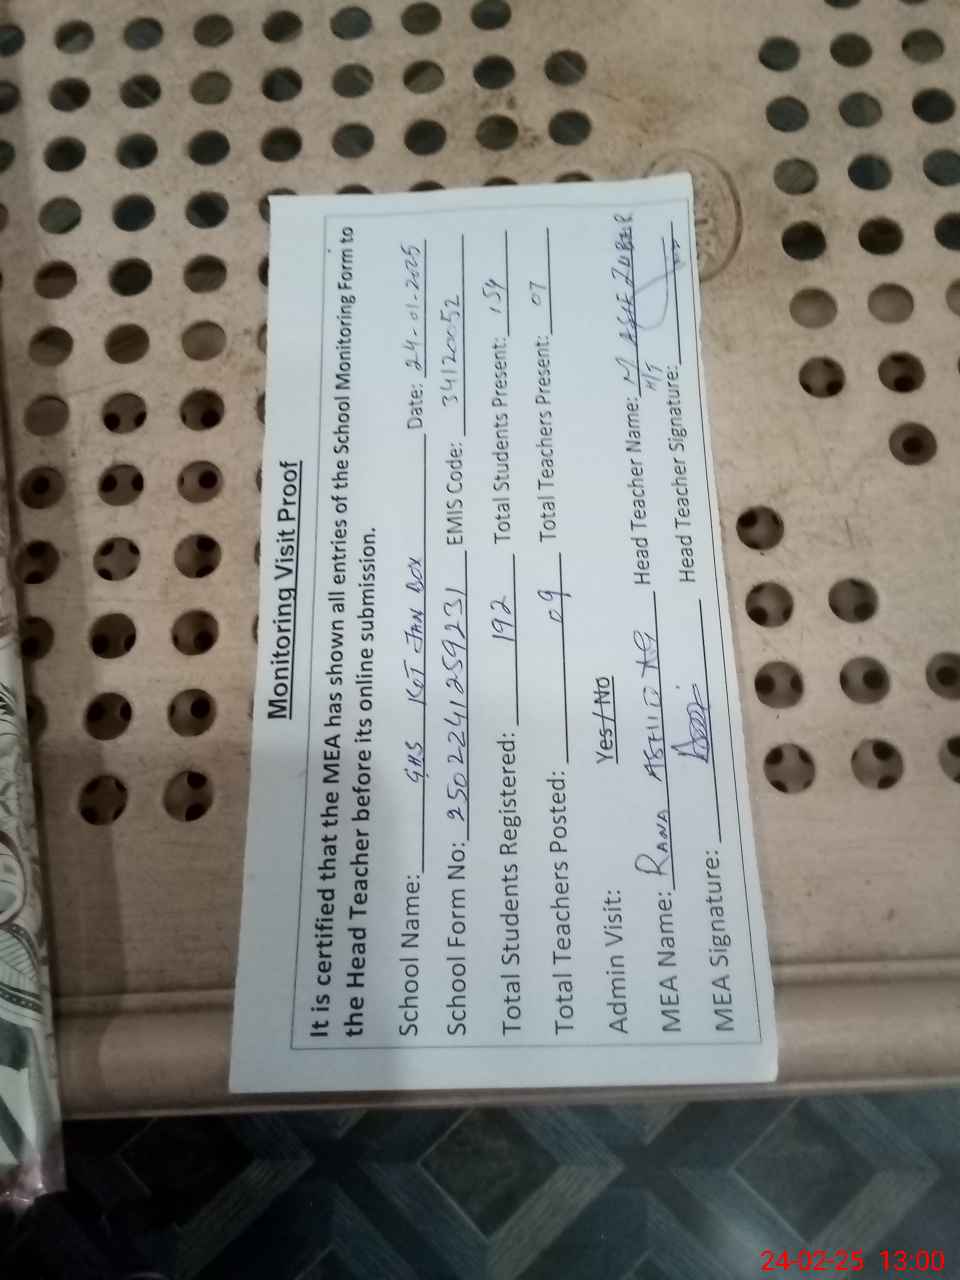 Monitoring Visit Proof
It is certified that the MEA has shown all entries of the School Monitoring Form to
the Head Teacher before its online submission.
School Name: GHS KOT JAN BOX Date: 24-01-2025
School Form No: 2502241259231 EMIS Code: 34120052
Total Students Registered: 192 Total Students Present: 154
Total Teachers Posted: 09 Total Teachers Present: 07
Admin Visit: Yes/No
MEA Name: RANA Head Teacher Name: M ZUBAIR
H/T
MEA Signature: Head Teacher Signature:
24-02-25 13:00